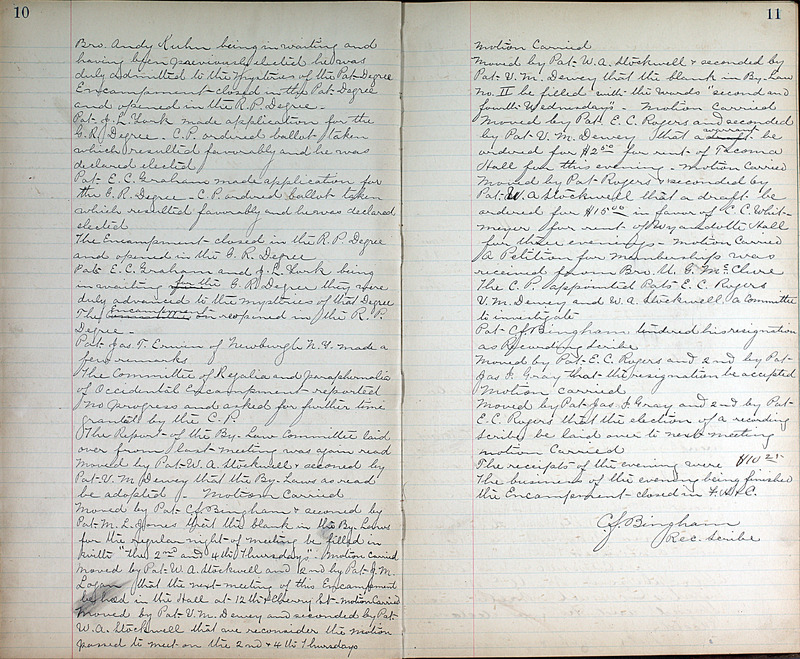 10
Bro. Andy Kuhn being in waiting and
having been previously elected he was
duly admitted to the mysteries of the Pat. Degree
Encampment closed in the Pat. Degree
and opened in the R.P. Degree -
Pat. J. L. York made application for the
G.R. Degree - C.P. ordired ballot taken
which resulted favorably and he was
declared elected
Pat. E.C. Graham made application for
the G.R. Degree - C.P. ordred ballot taken
which resulted favorably and he was declared
elected
The Encampment closed in the R.P. Degree
and opened in the G.R. Degree
Pats E.C. Graham and J. L. York being
in waiting for the G.R. Degree they were
duly advanced to the mysteries of that Degree
The Encampment reopened in the R.P.
Degree -
Pat. Jas T. Erwin of Newburgh N.Y. made a
few remarks
The Committee of Regalia and paraphernalia
of Occidental Encampment reported
no progress and asked for further time
granted by the C.P.
The Report of the By-Law Committee laid
over from last meeting was again read
Moved by Pat. W.A. Stockwell & seconed by
Pat. V.M. Dewey that the By-Laws as read
be adopted - Motion Carried
Moved by Pat. C.J. Bingham & seconed by
Pat. M.L. Jones that the blank in the By-Laws
for the regular night of meeting be filled in
with "the 2nd and 4th Thursdays" - Motion Carried
Moved by Pat. W.A. Stockwell and 2nd by Pat. J.M.
Logan that the next meeting of this Encampment
be held in the Hall at 12th & Cherry St - Motion Carried
Moved by Pat. V.M. Dewey and seconded by Pat.
W.A. Stockwell that we reconsider the motion
passed to meet on the 2nd & 4th Thursdays
11
Motion Carried
Moved by Pat. W.A. Stockwell & seconded by
Pat. V.M. Dewey that the blank in By-Law
No. II be filled with the words "second and
fourth Wednesdays" - Motion Carried
Moved by Pat. E.C. Rogers and seconded
by Pat. V.M. Dewey that a draft warrant be
ordered for $2.50 for rent of Tacoma
Hall for this evening - Motion Carried
Moved by Pat. Rogers & seconded by
Pat. W.A. Stockwell that a draft be
ordered for $15.00 in favor of C.C. Whit-
meyer for rent of Wyandotte Hall
for three evenings - Motion Carried
A Petition for membership was
received from Bro. W. G. McClure
The C.P. appointed Pats E.C. Rogers
V.M. Dewey and W.A. Stockwell a Committee
to investigate
Pat. C.J. Bingham tendered his resignation
as Recording Scribe
Moved by Pat. E.C. Rogers and 2nd by Pat.
Jas F. Gray that the resignation be accepted
Motion carried
Moved by Pat. Jas F. Gray and 2nd by Pat.
E.C. Rogers that the election of a recording
scribe be laid over to next meeting
motion Carried
The receipts of the evening were $10.25
The business of the evening being finished
the Encampment closed in F. H. & C.
C.J. Bingham
Rec. Scribe